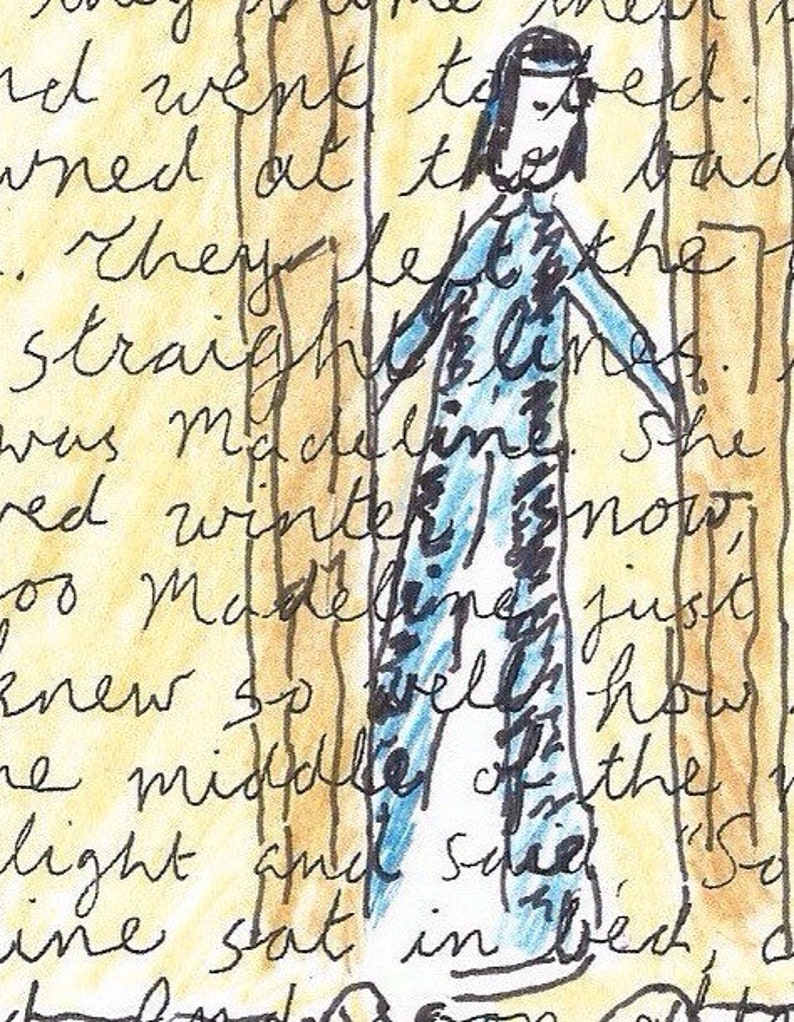 they
nd went to bed.
wned at the bad
. They left the
straight lines.
was Madeline. She
ved winter, now,
oo Madeline just
knew so well how
ne middle of the
light and said, "So
ine sat in bed,